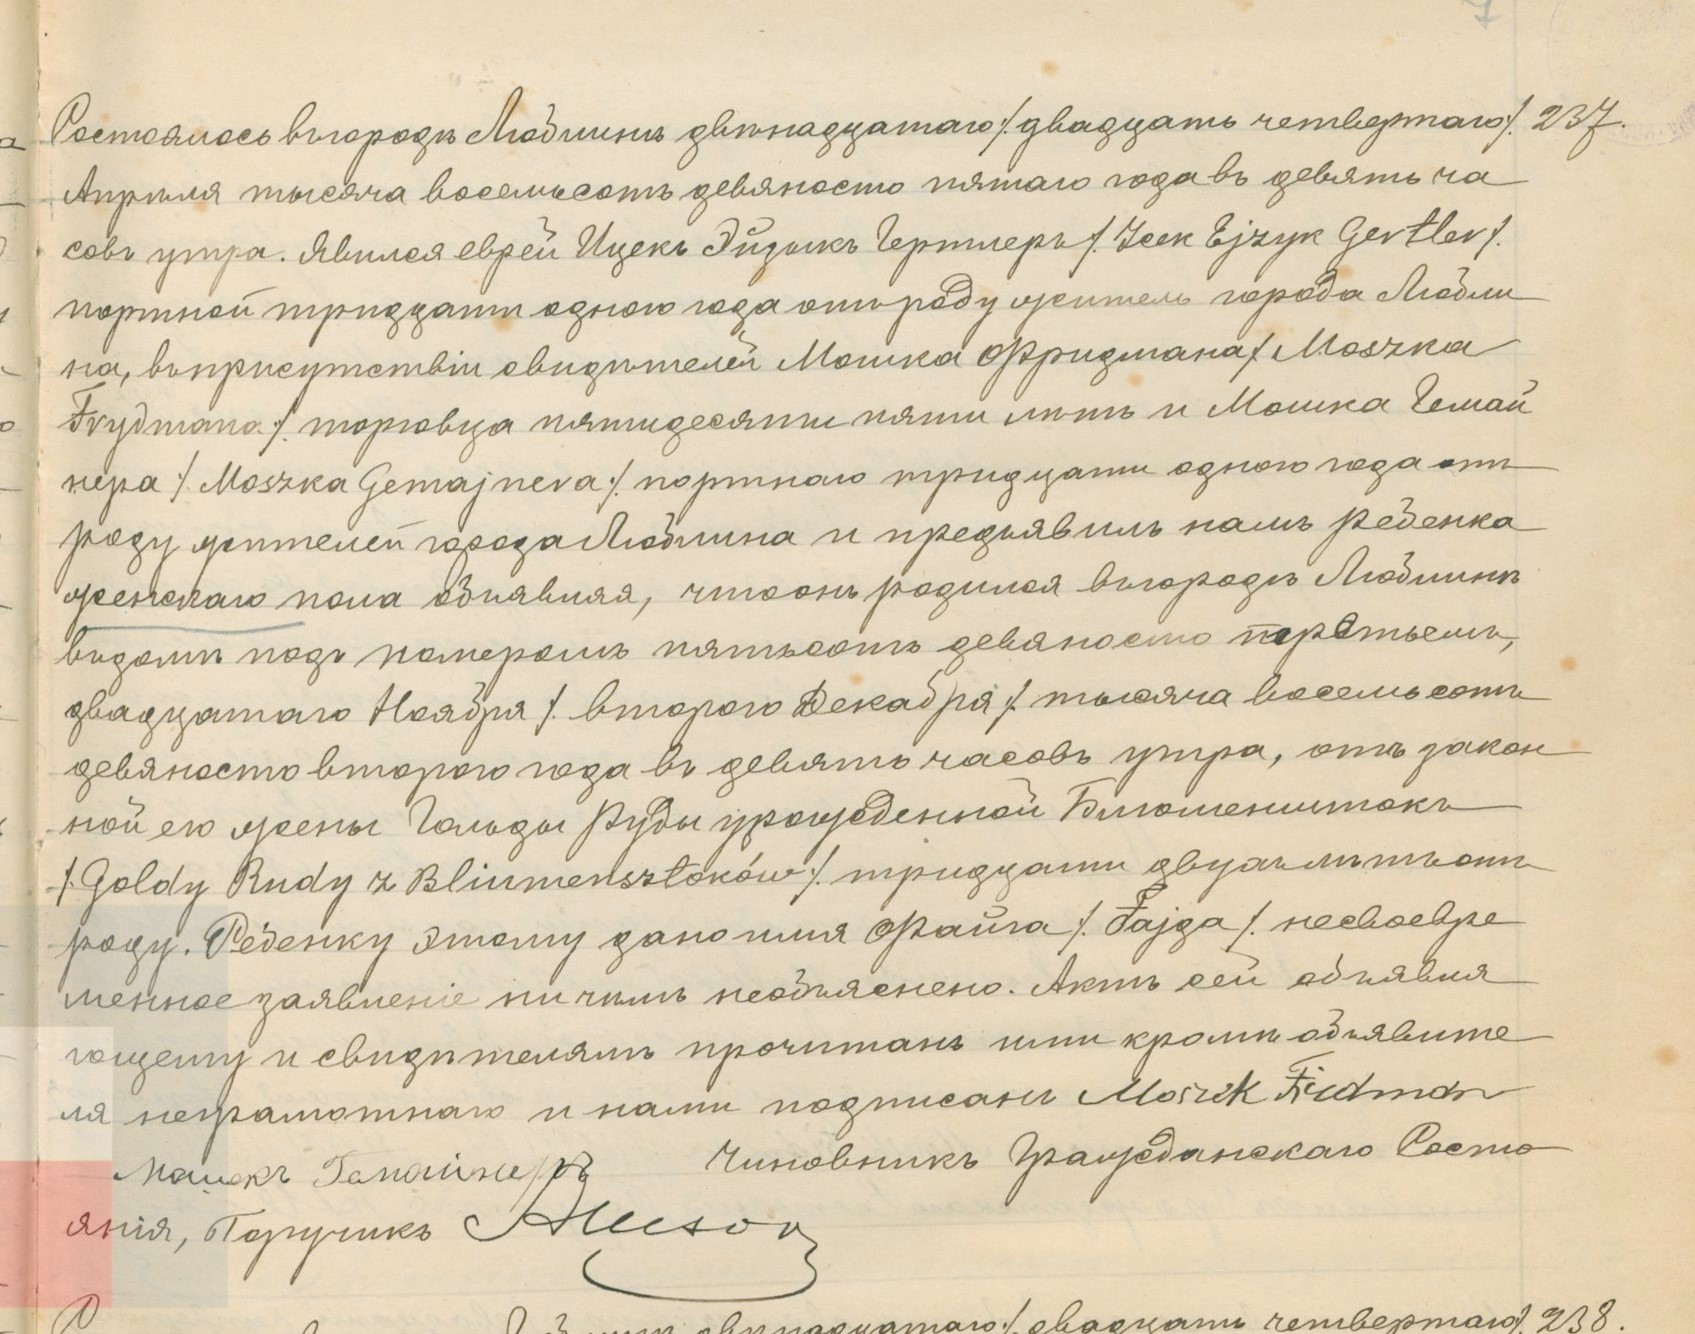 Состоялось въ городѣ Люблинѣ двѣнадцатаго /. двадцать четвертаго /. 237.
Апрѣля тысяча восемьсотъ девяносто пятаго года въ девять ча
совъ утра. Явился еврей Ицекъ Эйзыкъ Гертлеръ /. Icek Ejzyk Gertler /.
портной тридцати одного года отъ роду житель города Любли
на, въ присутствіи свидѣтелей Мошка Фридмана /. Moszka
Frydmana /. торговца пятидесяти пяти лѣтъ и Мошка Гемай
нера /. Moszka Gemajnera /. портнаго тридцати одного года отъ
роду жителей города Люблина и предъявилъ намъ ребенка
женскаго пола объявляя, что онъ родился въ городѣ Люблинѣ
въ домѣ подъ номеромъ пятьсотъ девяносто третьемъ,
двадцатаго Ноября /. втораго Декабря /. тысяча восемьсотъ
девяносто втораго года въ девять часовъ утра, отъ закон
ной его жены Гольды Руды урожденной Блюменштокъ
/. Goldy Rudy z Bliumensztoków /. тридцати двухъ лѣтъ отъ
роду. Ребенку этому дано имя Файга /. Fajga /. несвоевре
менное заявленіе ни чѣмъ необъяснено. Актъ сей объявля
ющему и свидѣтелямъ прочитанъ ими кромѣ объявите
ля неграмотнаго и нами подписанъ Moszek Fridman
Мошекъ Гемайнеръ Чиновникъ Гражданскаго Состо
янія, Поручикъ
238.